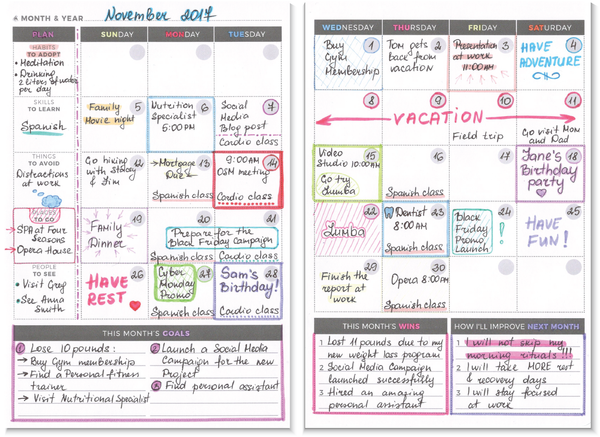 MONTH & YEAR November 2017
PLAN SUNDAY MONDAY TUESDAY
HABITS
TO ADOPT
• Meditation
• Drinking
2 Liters of water
per day
SKILLS
TO LEARN
Spanish
THINGS
TO AVOID
Distractions
at work
PLACES
TO GO
→ SPA at Four
Seasons
→ Opera House
PEOPLE
TO SEE
• Visit Greg
• See Anna
Smith
5
Family
Movie night
6
Nutrition
Specialist
5:00 PM
7
Social
Media
Blog post
Cardio class
12
Go hiking
with Stacey
& Jim
13
→ Mortgage
Due
Spanish class
14
9:00 AM
OSM meeting
Cardio class
19
Family
Dinner
20
21
Prepare for the
Black Friday Campaign
Spanish class
Cardio class
26
HAVE
REST
27
Cyber
Monday
Promo
Spanish class
28
Sam's
Birthday!
Cardio class
THIS MONTH'S GOALS
1 Lose 10 pounds:
→ Buy Gym membership
→ Find a Personal fitness
trainer
→ Visit Nutritional Specialist
2 Launch a Social Media
Campaign for the new
Project
3 Find personal assistant
WEDNESDAY THURSDAY FRIDAY SATURDAY
1
Buy
Gym
Membership
2
Tom gets
back from
vacation
3
Presentation
at work
11:00 AM
4
HAVE
ADVENTURE
8 9 10 11
VACATION
Field trip
Go visit Mom
and Dad
15
Video
Studio 10:00AM
Go try
Zumba
16
Spanish class
17
18
Jane's
Birthday
party
22
Zumba
23
Dentist
8:00 AM
Spanish class
24
Black
Friday
Promo
Launch
!
25
HAVE
FUN!
29
Finish the
report at
work
30
Opera 8:00PM
Spanish class
THIS MONTH'S WINS
1 Lost 11 pounds due to my
new weight loss program
2 Social Media Campaign
launched successfully
3 Hired an amazing
personal assistant
HOW I'LL IMPROVE NEXT MONTH
1 I will not skip my
morning rituals!!!
2 I will take MORE rest
& recovery days
3 I will stay focused
at work